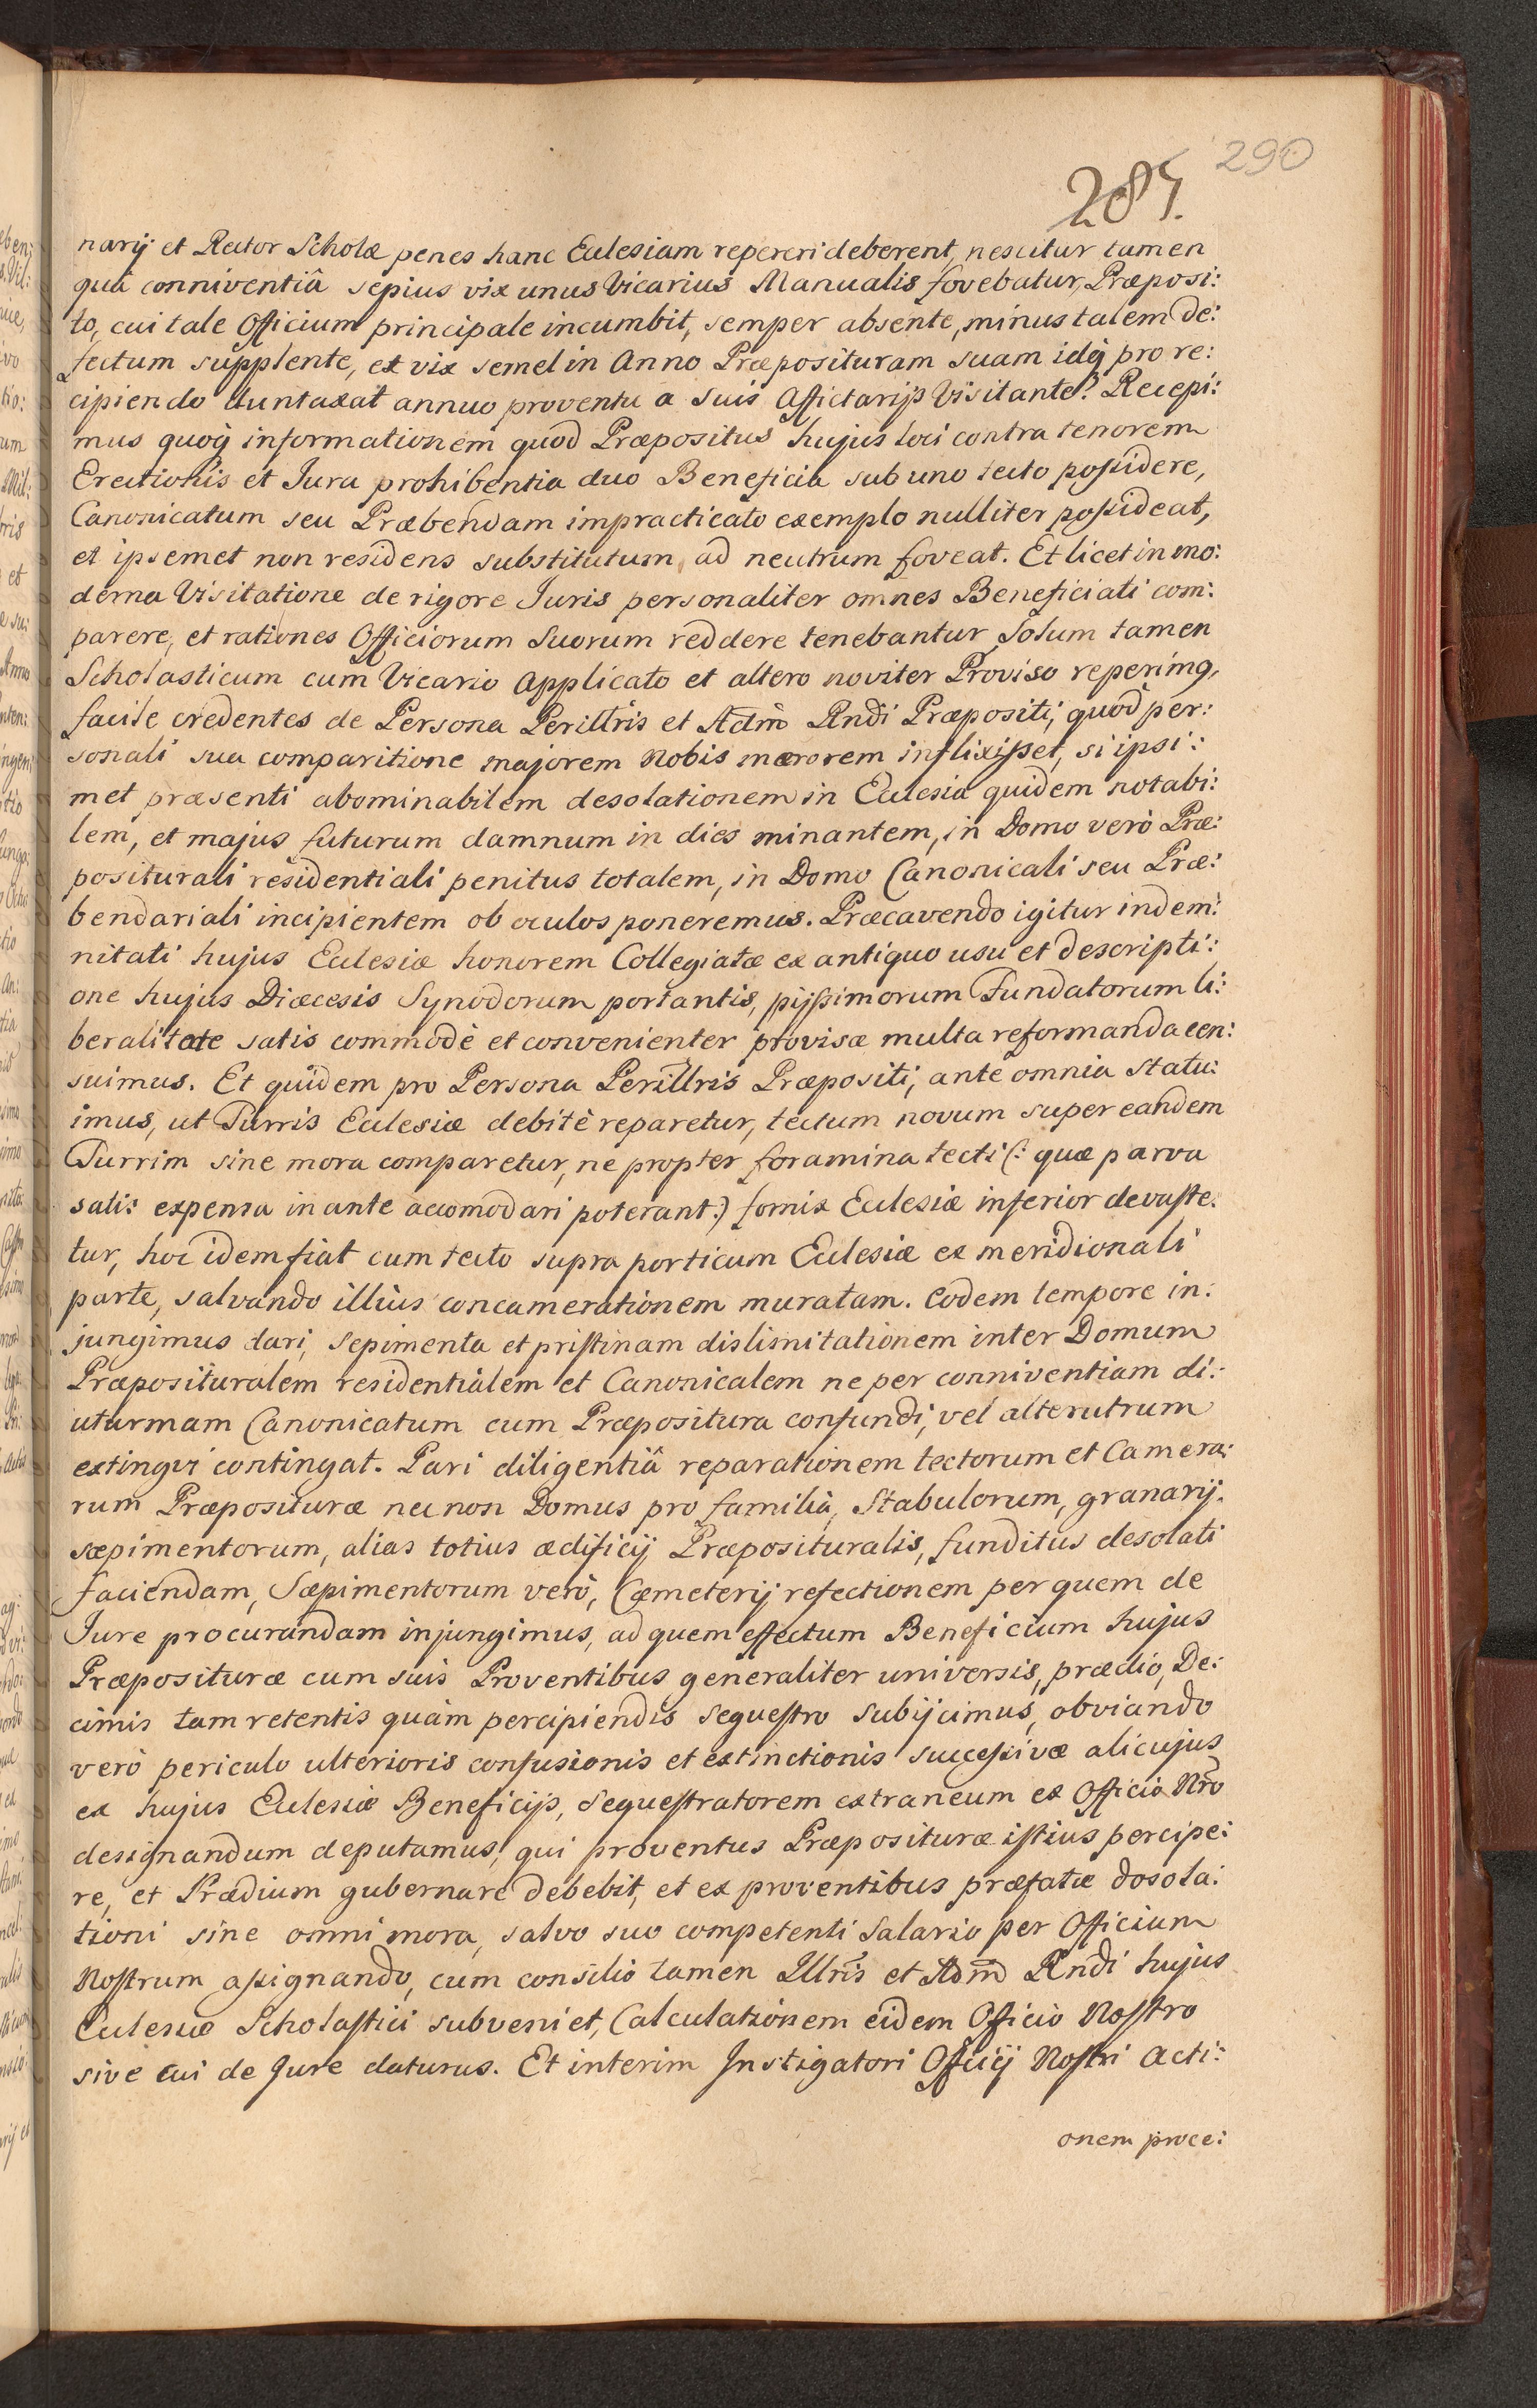 290
285.
narij et Rector Scholæ penes hanc Ecclesiam repereri deberent, nescitur tamen
quâ conniventiâ sepius vix unus Vicarius Manualis fovebatur, Præposi:
to, cui tale Officium principale incumbit, semper absente, minus talem de:
fectum supplente, et vix semel in Anno Præposituram suam idq́ pro re:
cipiendo duntaxat annuo proventu a suis Afictarijs Visitante. Recepi:
mus quoq́ informationem quod Præpositus hujus loci contra tenorem
Erectionis et Jura prohibentia duo Beneficia sub uno tecto poſsidere,
Canonicatum seu Præbendam impracticato exemplo nulliter poſsideat,
et ipsemet non residens substitutum ad neutrum foveat. Et licet in mo:
derna Visitatione de rigore Juris personaliter omnes Beneficiati com:
parere, et rationes Officiorum Suorum reddere tenebantur, Solum tamen
Scholasticum cum Vicario Applicato et altero noviter Proviso reperimq,
facile credentes de Persona Perillris et Adm̃ Rndi Præpositi, quod per:
sonali sua comparitione majorem Nobis mærorem inflixiſset, si ipsi:
met præsenti abominabilem desolationem in Ecclesia quidem notabi:
lem, et majus futurum damnum in dies minantem, in Domo verò Præ:
positurali residentiali penitus totalem, in Domo Canonicali seu Præ:
bendariali incipientem ob oculos poneremus. Præcavendo igitur indem:
nitati hujus Ecclesiæ honorem Collegiatæ ex antiquo usu et descripti:
one hujus Diæcesis Synodorum portantis, pijſsimorum Fundatorum li:
beralitate satis commodè et convenienter provisæ multa reformanda cen:
suimus. Et quidem pro Persona Perillris Præpositi, ante omnia Statu:
imus, ut Turris Ecclesiæ debitè reparetur, tectum novum super eandem
Turrim sine mora comparetur, ne propter foramina tecti (: quæ parva
satis expensa in ante accomodari poterant:) fornix Ecclesiæ inferior devaste:
tur, hoc idem fiat cum tecto supra porticum Ecclesiæ ex meridionali
parte, salvando illius concamerationem muratam. Eodem tempore in:
jungimus dari, Sepimenta et priſtinam dislimitationem inter Domum
Præposituralem residentialem et Canonicalem ne per conniventiam di:
uturmam Canonicatum cum Præpositura confundi, vel alterutrum
extingvi contingat. Pari diligentiâ reparationem tectorum et Camera:
rum Præposituræ nec non Domus pro familia, Stabulorum, granarij,
sæpimentorum, alias totius ædificij Præposituralis, funditus desolati
faciendam, Sæpimentorum verò, Cæmeterij refectionem per quem de
Jure procurandam injungimus, ad quem effectum Beneficium hujus
Præposituræ cum suis Proventibus generaliter universis, prædio, De:
cimis tam retentis quàm percipiendis Sequeſtro Subijcimus, obviando
verò periculo ulterioris confusionis et extinctionis succeſsivæ alicujus
ex hujus Ecclesiæ Beneficijs, Sequeſtratorem extraneum ex Officio Nr̃o
designandum deputamus, qui proventus Præposituræ iſtius percipe:
re, et Prædium gubernare debebit, et ex proventibus præfatæ dosola:
tioni sine omni mora, salvo suo competenti Salario per Officium
Noſtrum aſsignando, cum consilio tamen Illr̃is et Adm̃ Rndi hujus
Ecclesiæ Scholaſtici subveniet, Calculationem eidem Officio Noſtro
sive cui de Jure daturus. Et interim Instigatori Officij Noſtri Acti:
onem proce: